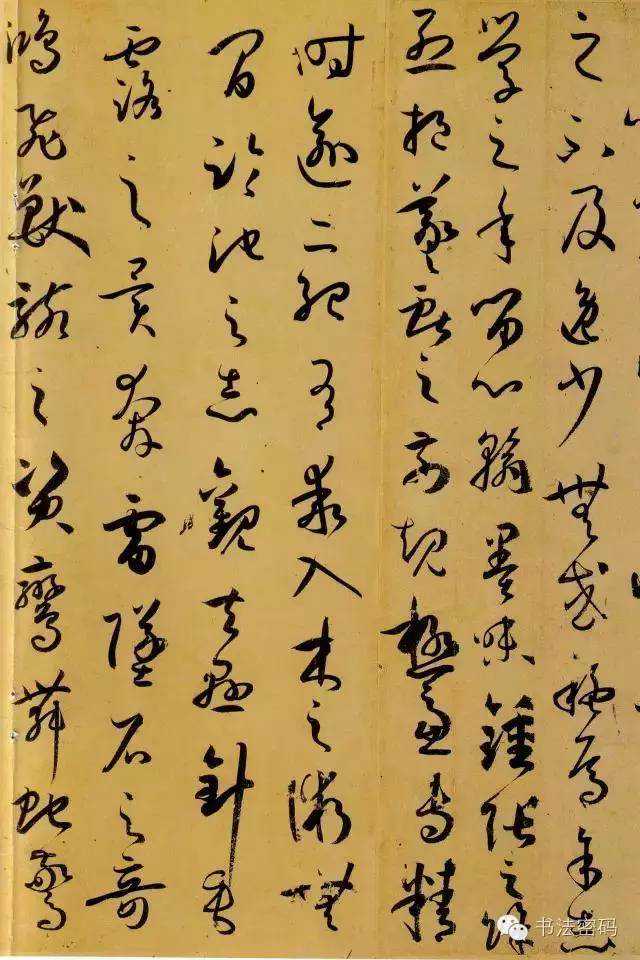 之不及逸少無或疑焉余志
學之年留心翰墨味鍾張之餘
烈挹羲獻之前規極慮專精
時逾二紀有乖入木之術無
間臨池之志觀夫懸針垂
露之異奔雷墜石之奇
鴻飛獸駭之資鸞舞蛇驚
书法密码